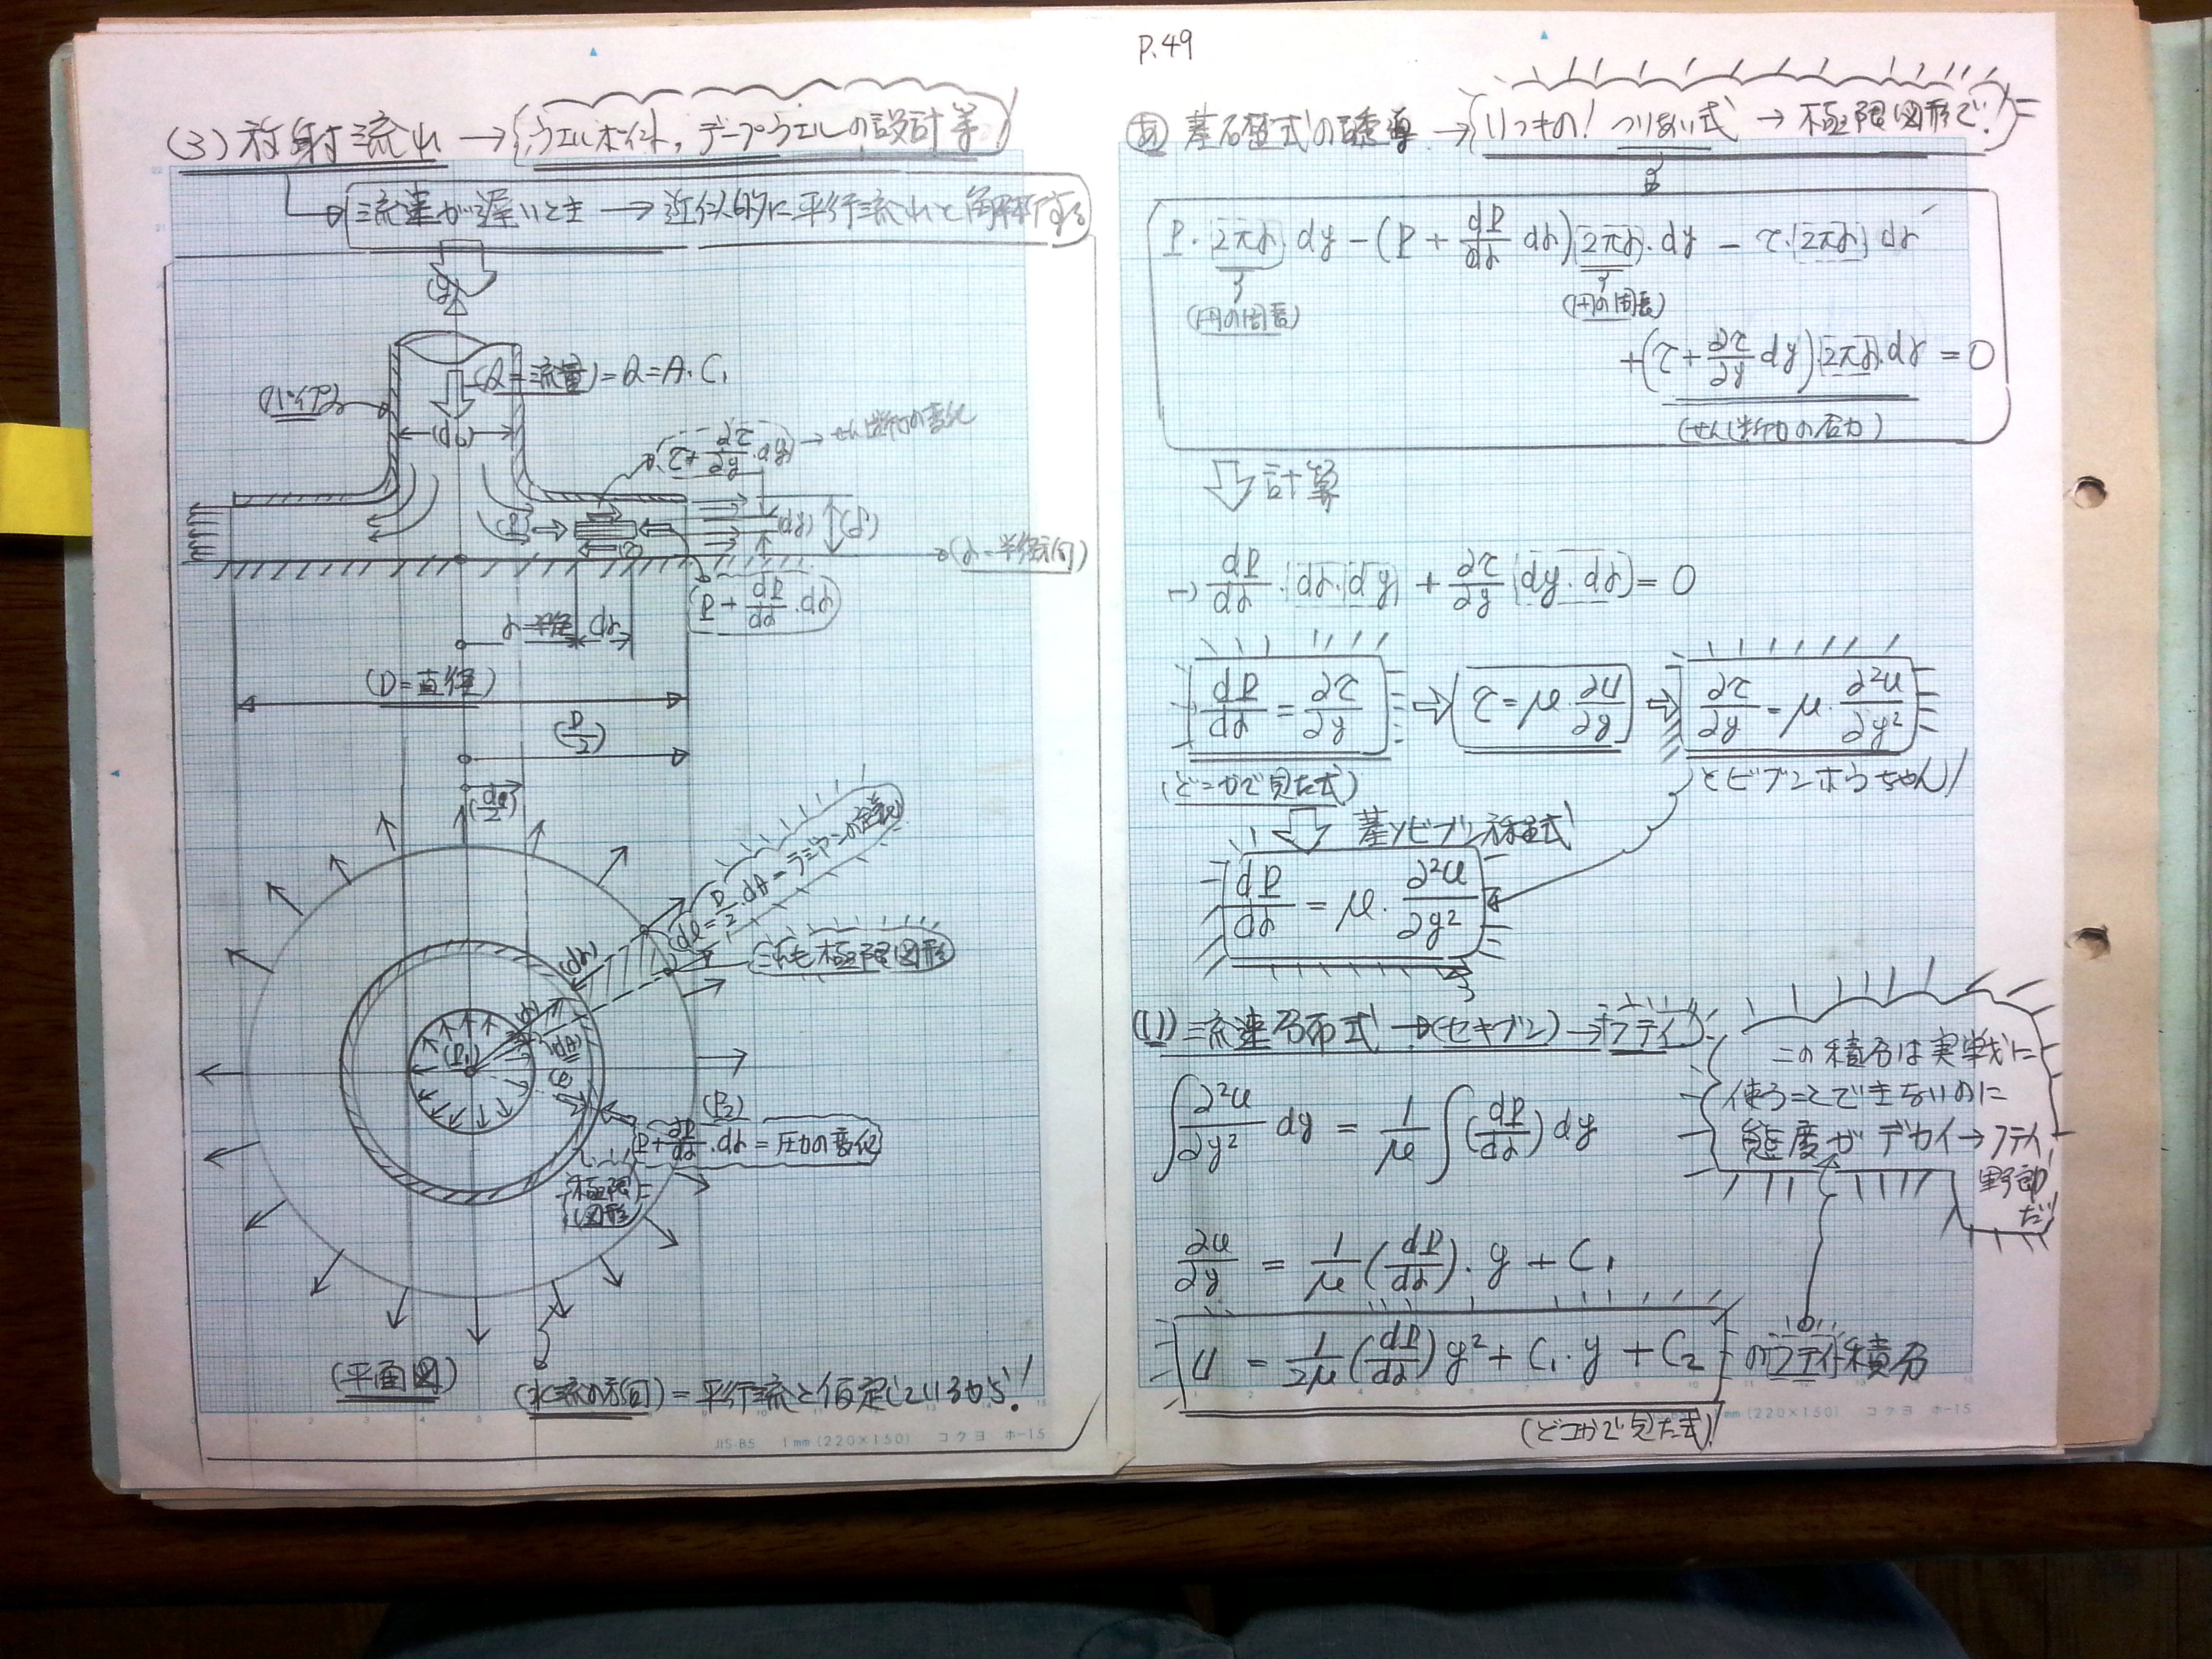 (3) 放射流れ → (ウエルポイント, デープウエルの設計等)
流速が遅いとき → 近似的に平行流れと解析する
(y)
(Q=流量) = Q = A・C₁
(パイプ)
(d₀)
(τ + ∂τ/∂y・dy) → せん断力の変化
(P)
(τ)
(dy)
(r = 半径方向)
(P + dP/dr・dr)
r = 半径
dr
(D = 直径)
(D/2)
(d₀/2)
(dℓ = D/2・dθ = ラジアンの定義)
これも極限図形
(dr)
(r)
(dθ)
(P₁)
(P)
(P₂)
P + dP/dr・dr = 圧力の変化
極限
図形
(平面図)
(水流の方向) = 平行流と仮定しているから!
JIS B5 1mm (220×150) コクヨ ホ-15
P.49
あ 基礎式の誘導 → (いつもの! つりあい式 → 極限図形で!)
P・2πr dy − (P + dP/dr dr) 2πr・dy − τ・2πr dr
(円の周長) (円の周長)
+ (τ + ∂τ/∂y dy) 2πr・dr = 0
(せん断力の合力)
計算
−) dP/dr・dr・dy + ∂τ/∂y (dy・dr) = 0
dP/dr = ∂τ/∂y ⇒ τ = μ・∂u/∂y ⇒ ∂τ/∂y = μ・∂²u/∂y²
(どこかで見た式) とビブンホウちゃん!
基ソビブン方程式
dP/dr = μ・∂²u/∂y²
(1) 流速分布式 → (セキブン) → フテイ
∫ ∂²u/∂y² dy = 1/μ ∫ (dP/dr) dy
この積分は実戦に
使うことできないのに
態度がデカイ → フテイ
野郎
だ!
∂u/∂y = 1/μ (dP/dr)・y + C₁
u = 1/2μ (dP/dr) y² + C₁・y + C₂ のフテイ積分
(どこかで見た式)!
1mm (220×150) コクヨ ホ-15